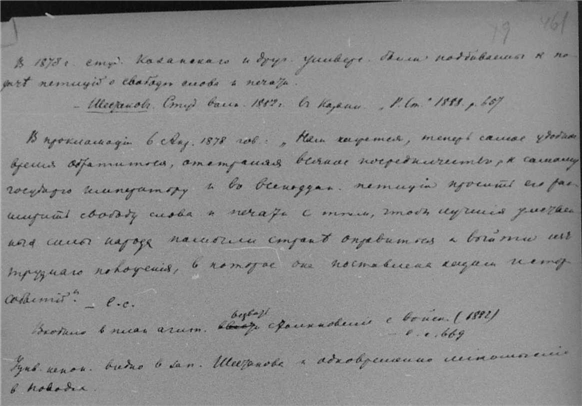 79 461
В 1878 г. студ. Казанского и друг. универс. были подбиваемы к по-
дачѣ петицiй о свободѣ слова и печати.
– Шестаков. Студ. волн. 1882 г. в Казани "Р. Ст." 1888 p. 657
В прокламацiи 6 Апр. 1878 гов.: "Нам кажется, теперь самое удобное
время обратиться, отстраняя всякое посредничество, к самому
государю императору и во всеподдан. петицiи просить его рас-
ширить свободу слова и печати с тѣм, чтобы лучшiя умствен-
ныя силы народа помогли странѣ оправиться и выйти из
труднаго положенiя, в которое она поставлена ходом истор.
событiй". – l. c.
Входило в план агит. вызвать столкновенiе с войск. (1882)
– l. c. 669
видно в зап. Шестакова и одновременно
в поводах.